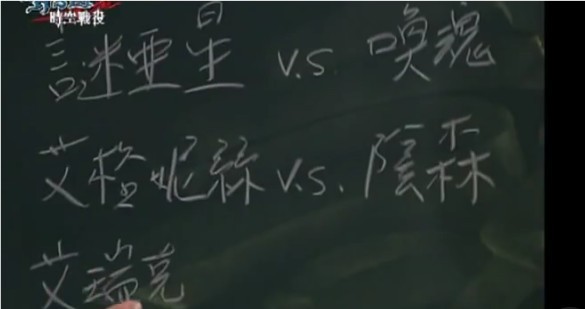 時空戰役
謎亞星 v.s 喚魂
艾格妮絲 v.s. 陰森
艾瑞克